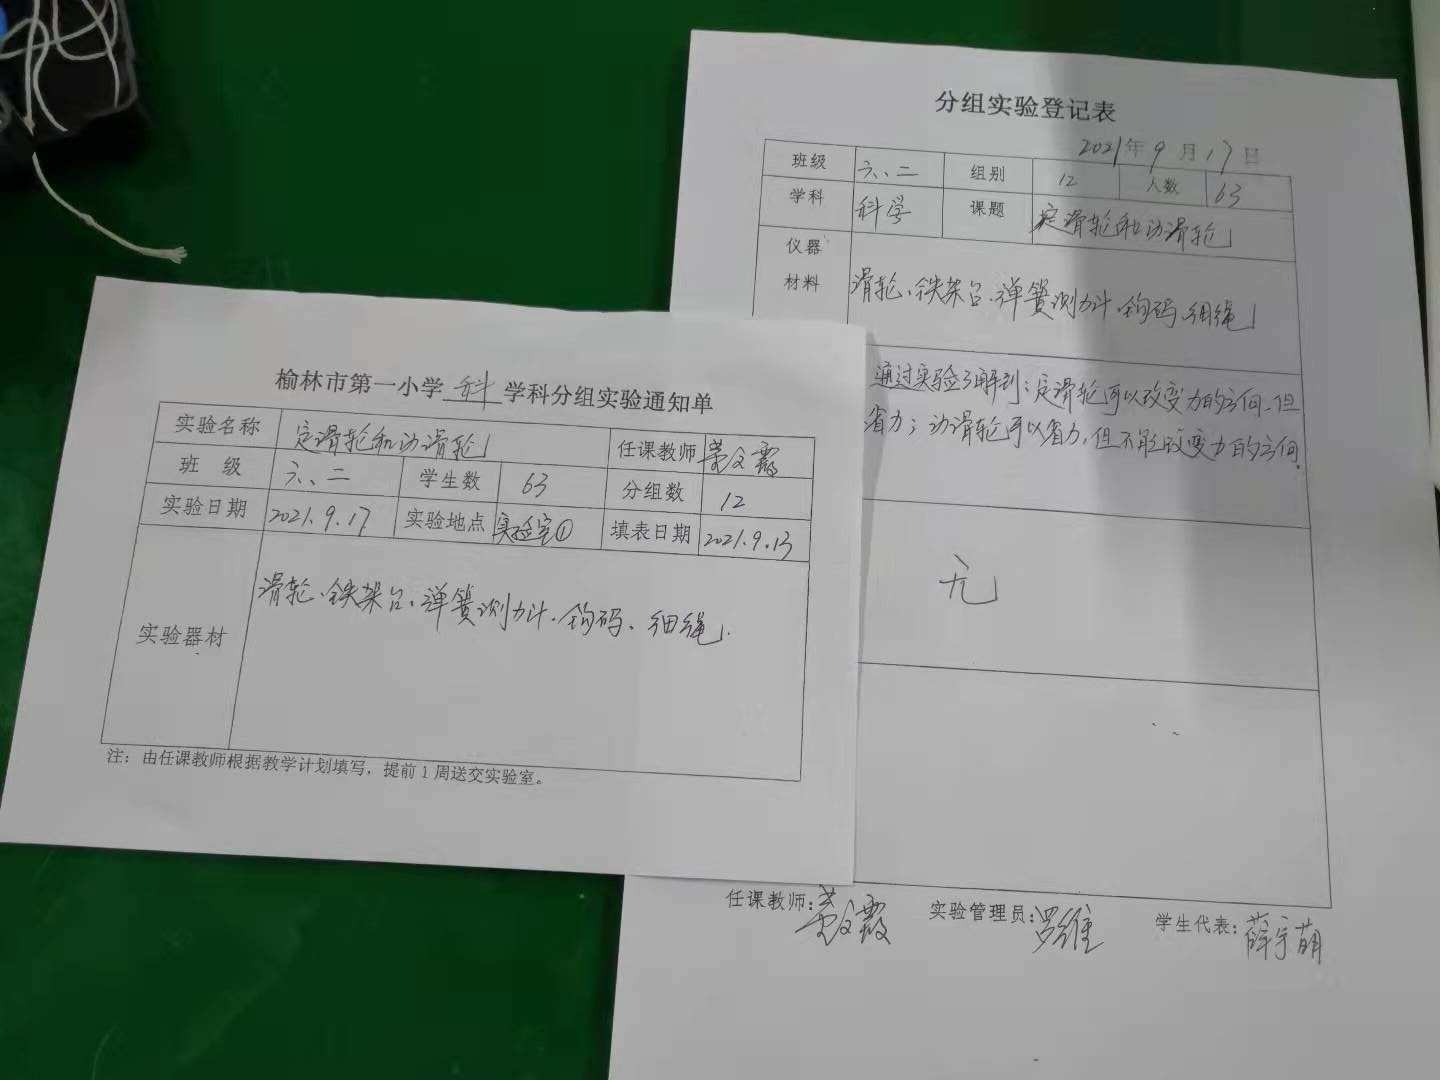 榆林市第一小学 科 学科分组实验通知单
实验名称 定滑轮和动滑轮 任课教师
班 级 六、二 学生数 63 分组数 12
实验日期 2021.9.17 实验地点 实验室① 填表日期 2021.9.13
实验器材 滑轮、铁架台、弹簧测力计、钩码、细绳.
注：由任课教师根据教学计划填写，提前1周送交实验室。
分组实验登记表
2021年9月17日
班级 六、二 组别 12 人数 63
学科 科学 课题 定滑轮和动滑轮
仪器
材料 滑轮、铁架台、弹簧测力计、钩码、细绳
通过实验了解到：定滑轮可以改变力的方向，但
省力；动滑轮可以省力，但不能改变力的方向。
无
任课教师： 实验管理员：罗维 学生代表：薛宇萌